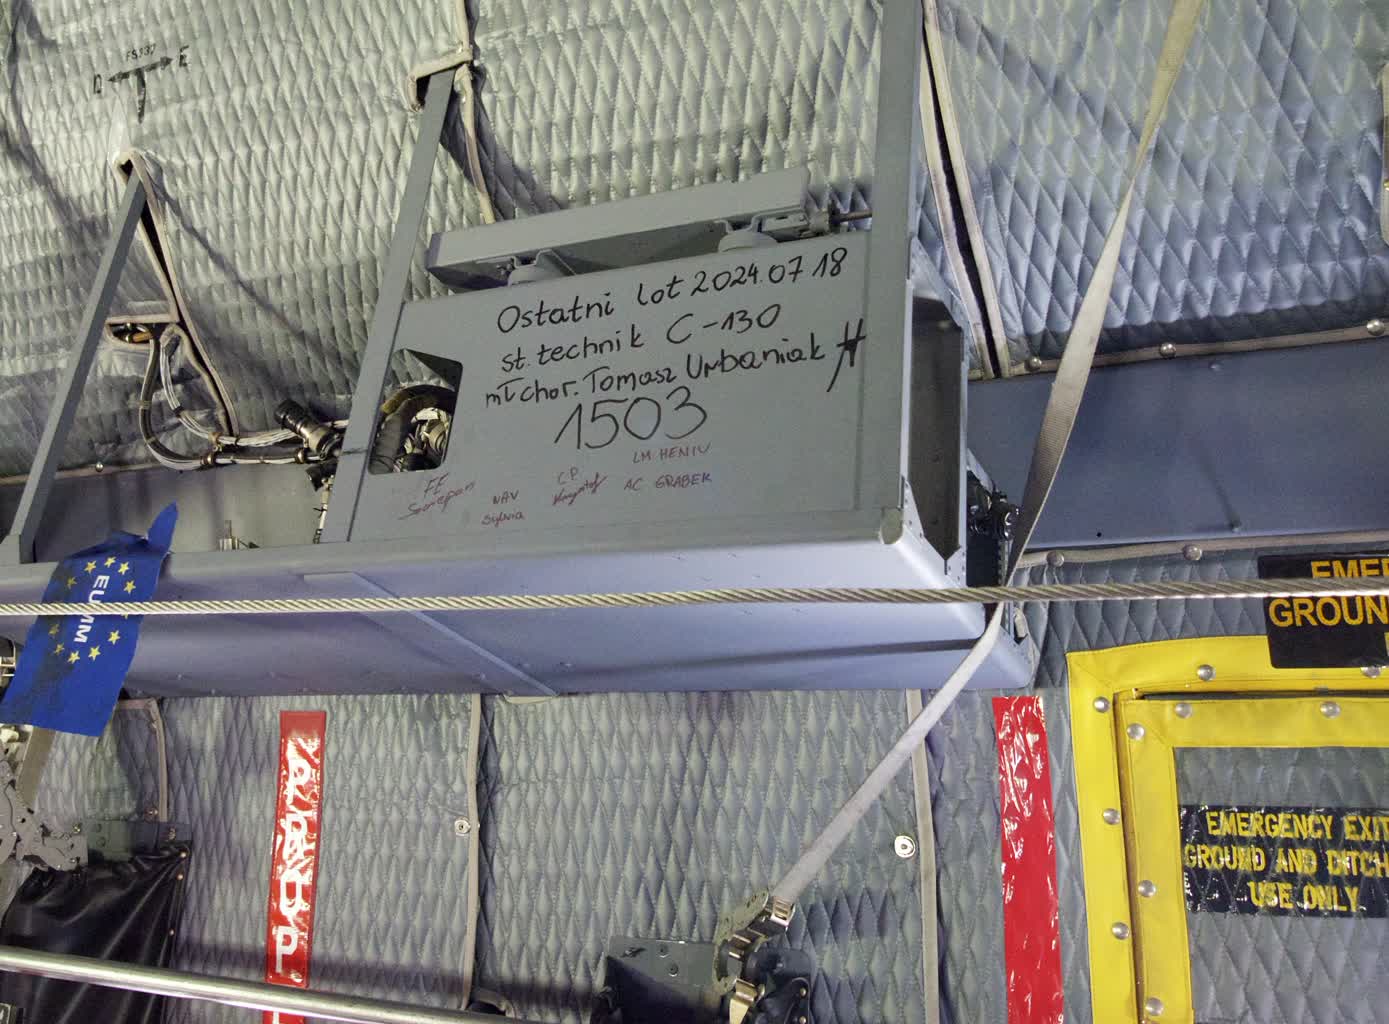 FS337
D E
Ostatni lot 2024.07.18
st. technik C-130
mł chor. Tomasz Urbaniak
1503
LM HENIU
FE
Szczepan
NAV
Sylwia
CP
Krzysztof
AC GRABEK
EUMM
EMER
GROUN
EMERGENCY EXIT
GROUND AND DITCH
USE ONLY